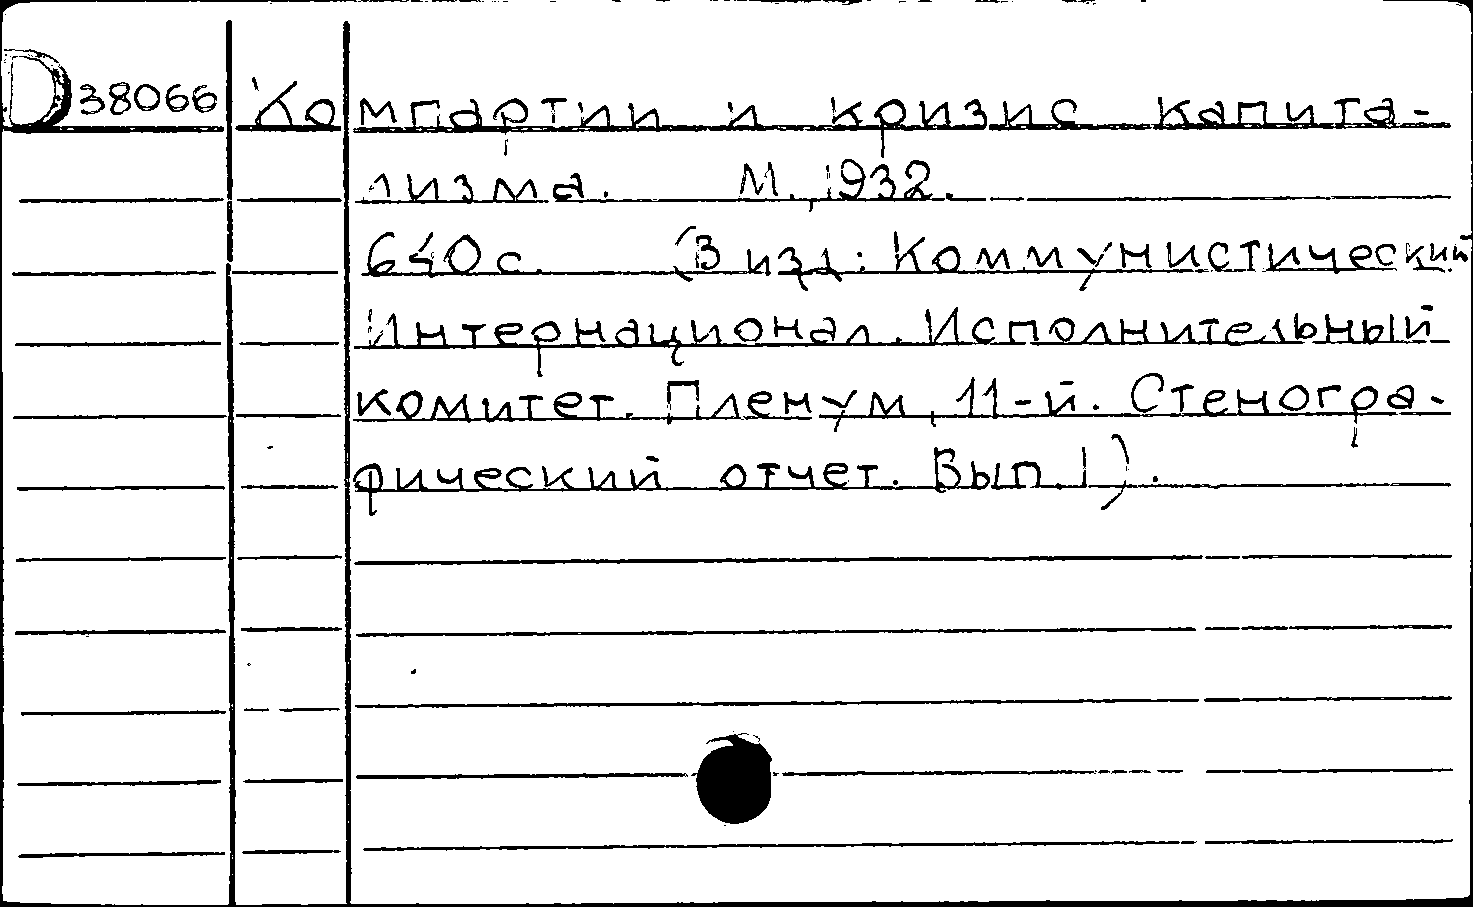 D38066 Компартии и кризис капита-
лизма. М., 1932.
640 с. (В изд: Коммунистический
Интернационал. Исполнительный
комитет. Пленум, 11-й. Стеногра-
фический отчет. Вып. 1).